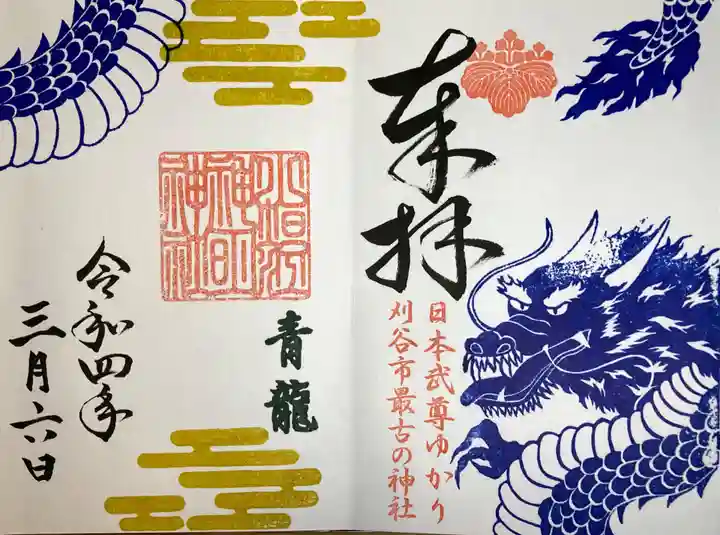 奉拝
日本武尊ゆかり
刈谷市最古の神社
青龍
令和四年
三月六日